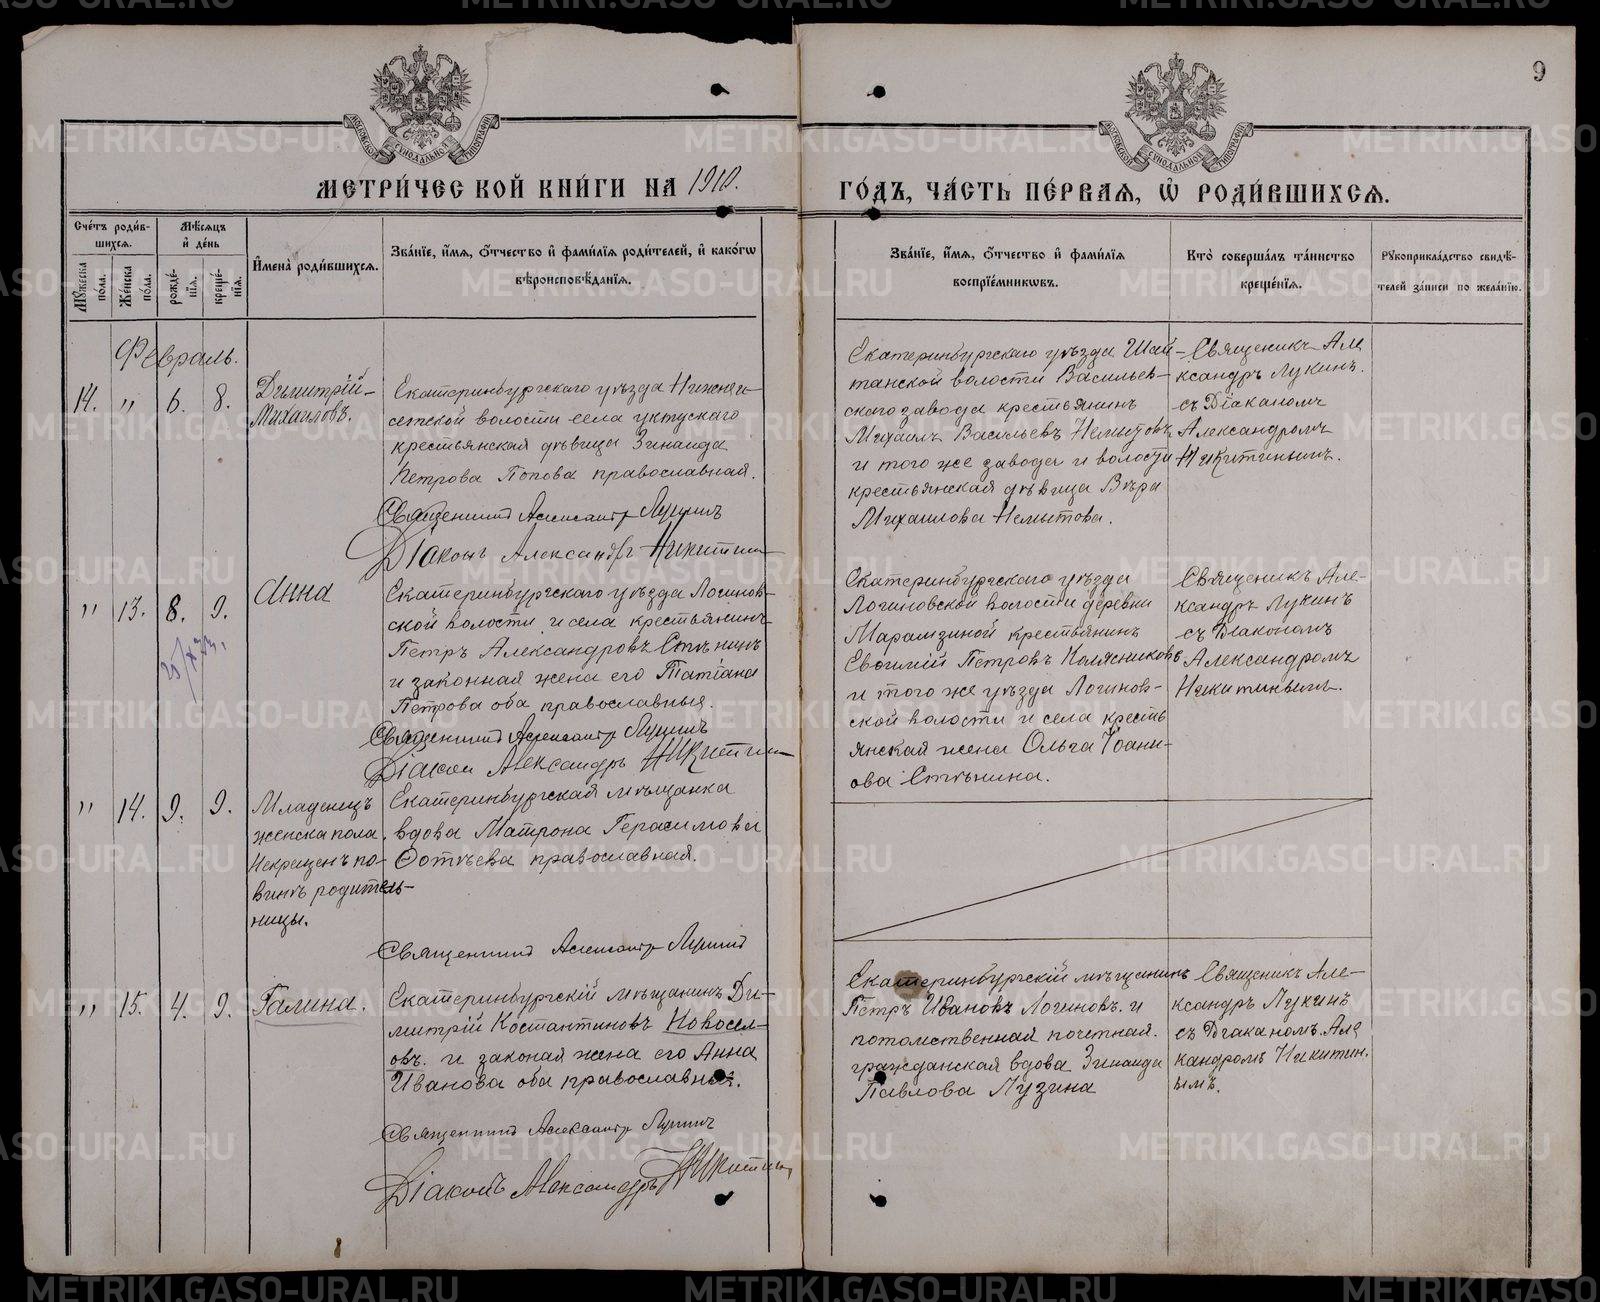 9
МОСКОВСКОЙ СУНОДАЛЬНОЙ ТИПОГРАФІИ
МОСКОВСКОЙ СУНОДАЛЬНОЙ ТИПОГРАФІИ
МЕТРИ́ЧЕСКОЙ КНИ́ГИ НА 1910.
ГО́ДЪ, ЧА́СТЬ ПЕ́РВАЯ, Ѡ РОДИ́ВШИХСѦ.
Сче́тъ роди́в-
шихсѧ.
Мѣ́сѧцъ
и҆ де́нь
Мꙋ́жеска
по́ла.
Же́нска
по́ла.
рожде́-
нїѧ.
креще́-
нїѧ.
И҆мена̀ роди́вшихсѧ.
Зва́нїе, и҆́мѧ, ѻ҆́тчество и҆ фамилїѧ роди́телей, и҆ како́гѡ
вѣроисповѣ́данїѧ.
Зва́нїе, и҆́мѧ, ѻ҆́тчество и҆ фами́лїѧ
воспрїе́мникѡвъ.
Кто̀ соверша́лъ та́инство
креще́нїѧ.
Рꙋкоприкла́дство свидѣ́-
телей за́писи по жела́нїю.
Февраль.
14. " 6. 8.
Димитрій
Михаиловъ.
Екатеринбургскаго уѣзда Нижнеи-
сетской волости села уктускаго
крестьянская дѣвица Зинаида
Петрова Попова православная.
Священникъ Александръ Лукинъ
Діаконъ Александръ Никитинъ
Екатеринбургскаго уѣзда Шай-
танской волости Васильев-
скаго завода крестьянинъ
Михаилъ Васильевъ Немытовъ
и того же завода и волости
крестьянская дѣвица Вѣра
Михаилова Немытова.
Священикъ Але
ксандръ Лукинъ.
съ Діаканомъ
Александромъ
Никитинымъ.
" 13. 8. 9.
Анна
Екатеринбургскаго уѣзда Логинов-
ской волости и села крестьянинъ
Петръ Александровъ Стѣнинъ
и законная жена его Татіана
Петрова оба православныя.
Священникъ Александръ Лукинъ
Діакон Александръ Никитинъ
Екатеринбургскаго уѣзда
Логиновской волости деревни
Марамзиной крестьянинъ
Евфимій Петровъ Колясниковъ
и того же уѣзда Логинов-
ской волости и села кресть
янская жена Ольга Іоанн-
ова Стѣнина.
Священикъ Але-
ксандръ Лукинъ
съ Діакономъ
Александромъ
Никитинымъ.
" 14. 9. 9.
Младенецъ
женска пола.
Некрещенъ по-
винѣ родитель-
ницы.
Екатеринбургская мѣщанка
вдова Матрона Герасимова
Фотѣева православная.
Священникъ Александръ Лукинъ
" 15. 4. 9.
Галина.
Екатеринбургскій мѣщанинъ Ди-
митрій Костантиновъ Новосел-
овъ. и законая жена его Анна
Иванова оба православныя.
Священникъ Александръ Лукинъ
Діаконъ Александръ Никитинъ
Екатеринбургскій мѣщанинъ
Петръ Ивановъ Логиновъ. и
потомственная почетная.
гражданская вдова Зинаида
Павлова Лузина
Священикъ Але-
ксандръ Лукинъ
съ Діаканомъ Але
кандромъ Никитин.
ымъ.
METRIKI.GASO-URAL.RU